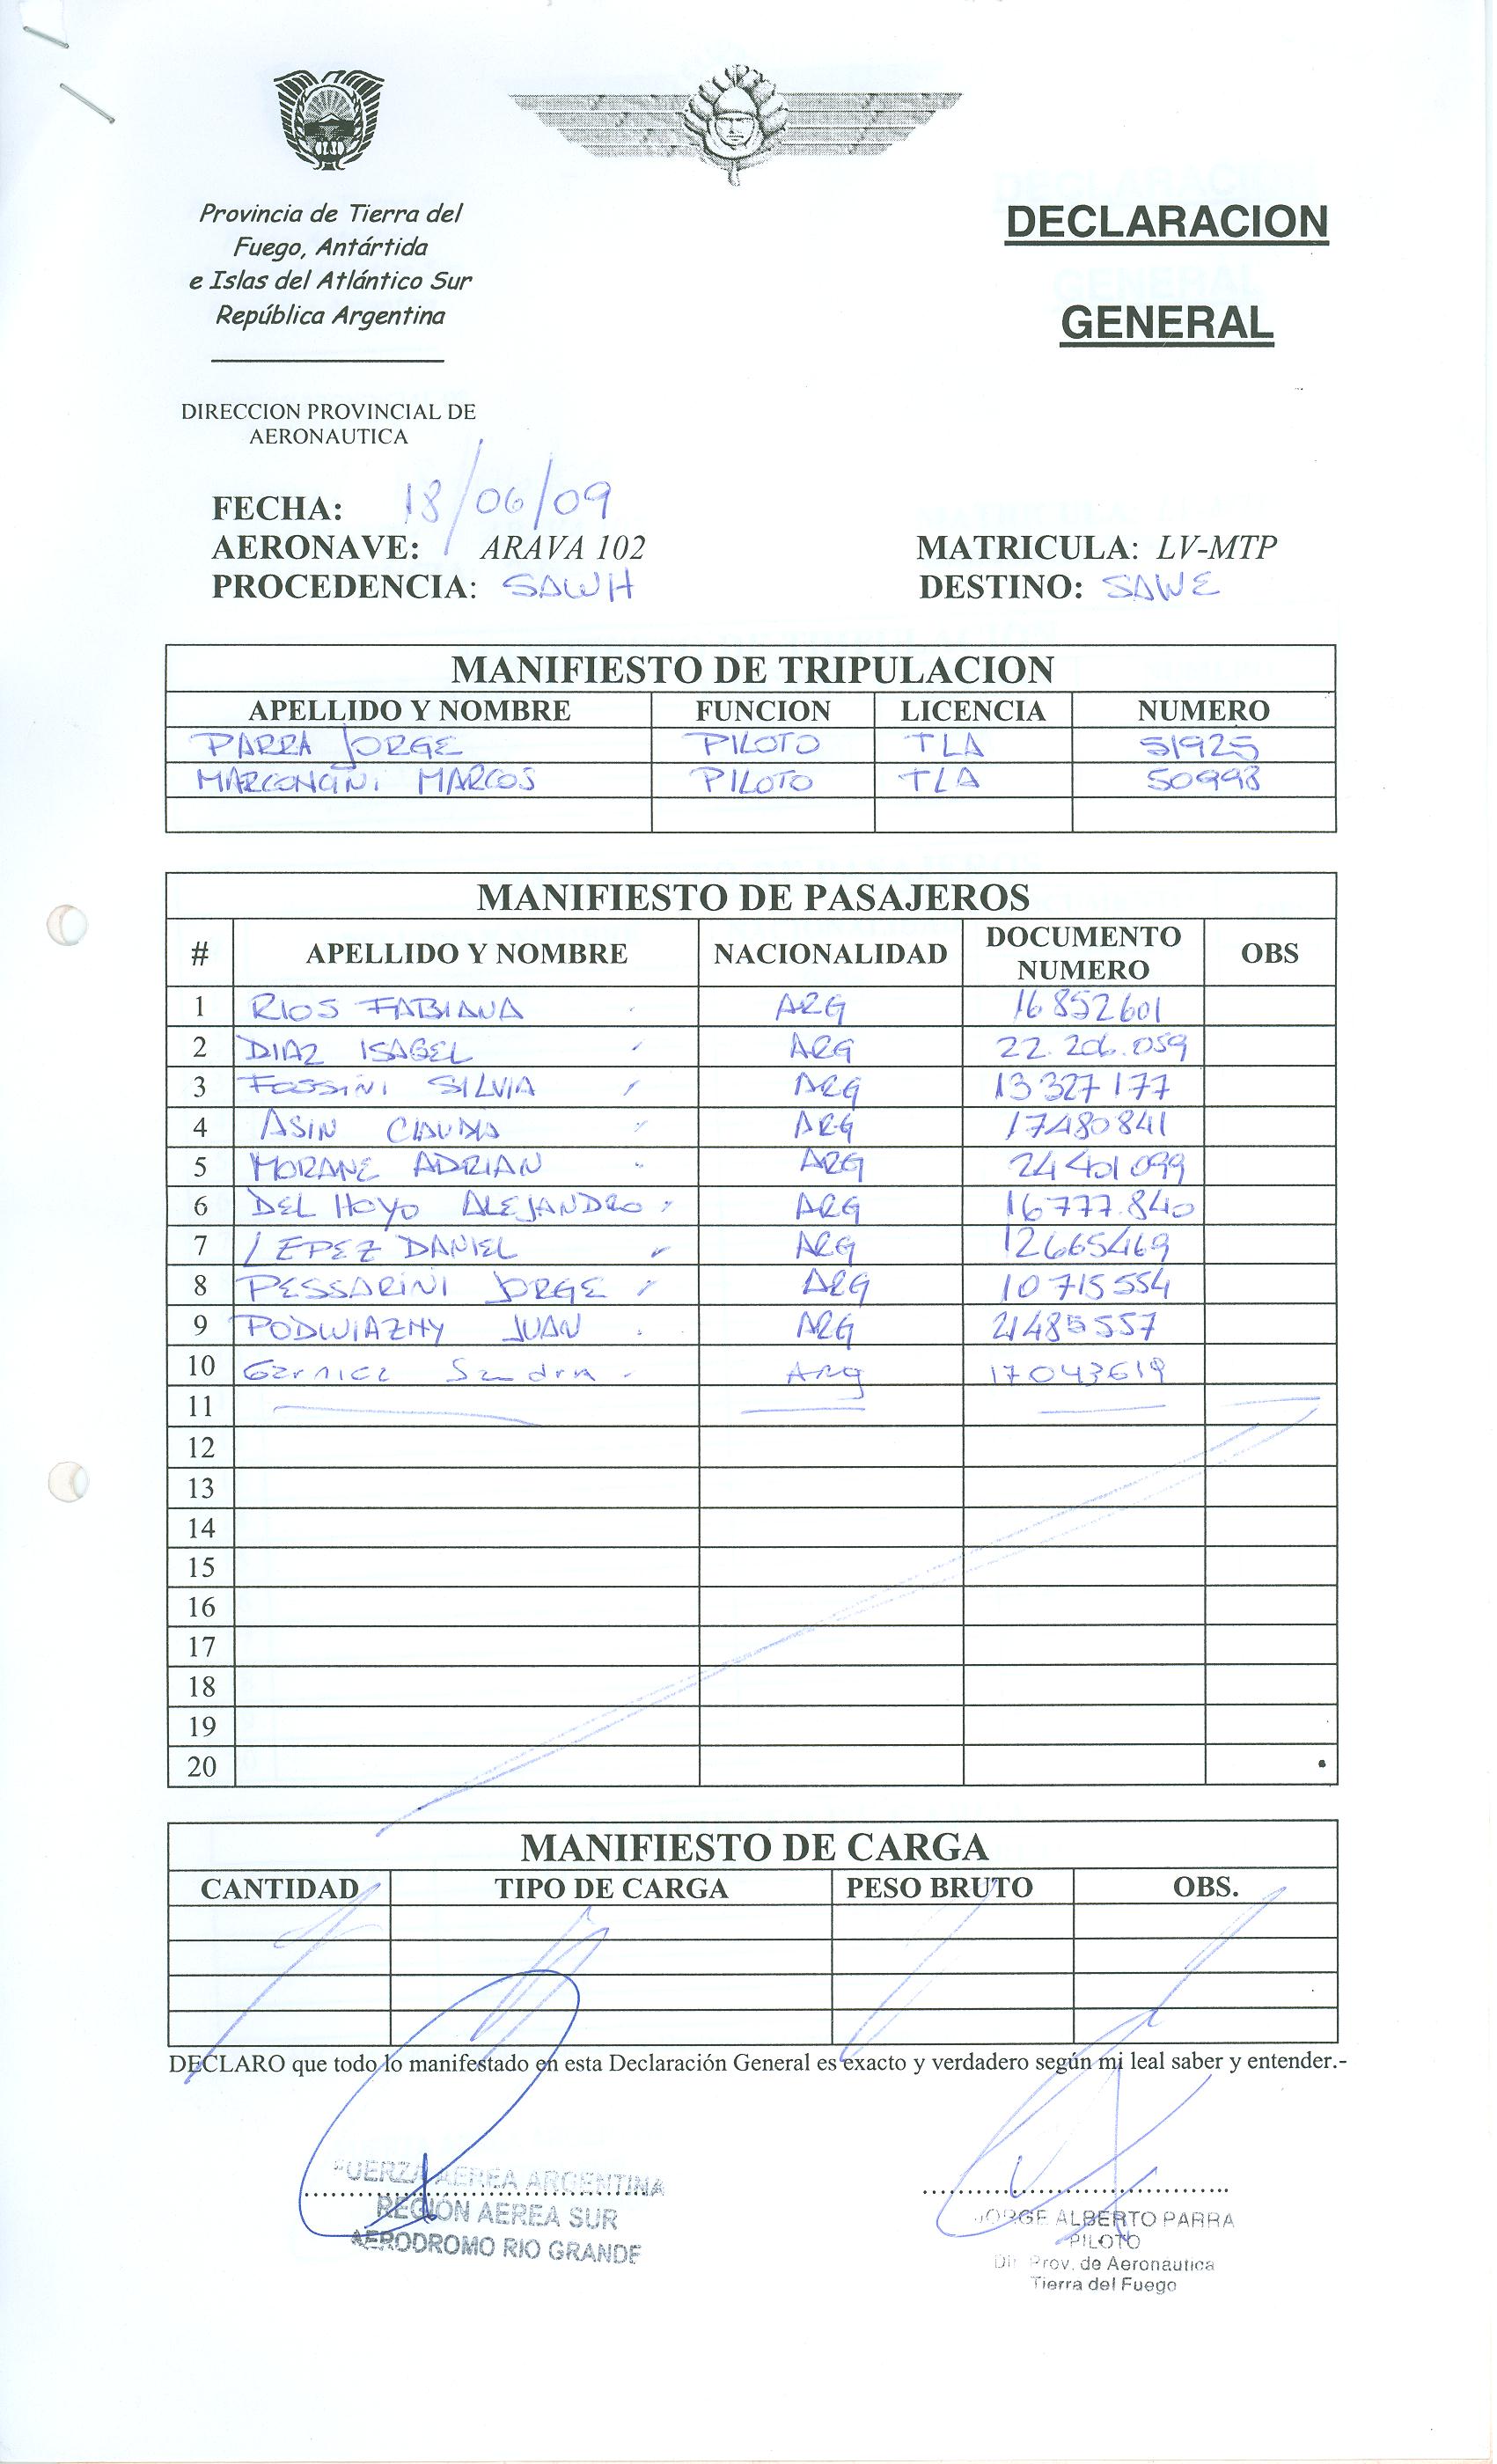 Provincia de Tierra del
Fuego, Antártida
e Islas del Atlántico Sur
República Argentina
DECLARACION
GENERAL
DIRECCION PROVINCIAL DE
AERONAUTICA
FECHA: 18/06/09
AERONAVE: ARAVA 102 MATRICULA: LV-MTP
PROCEDENCIA: SAWH DESTINO: SAWE
MANIFIESTO DE TRIPULACION
APELLIDO Y NOMBRE FUNCION LICENCIA NUMERO
PARRA JORGE PILOTO TLA 51925
MARCONCINI MARCOS PILOTO TLA 50998
MANIFIESTO DE PASAJEROS
# APELLIDO Y NOMBRE NACIONALIDAD DOCUMENTO NUMERO OBS
1 RIOS FABIANA ARG 16852601
2 DIAZ ISABEL ARG 22.206.059
3 FOSSINI SILVIA ARG 13327177
4 ASIN CLAUDIA ARG 17480841
5 MORANE ADRIAN ARG 24401099
6 DEL HOYO ALEJANDRO ARG 16777.840
7 LEPEZ DANIEL ARG 12665469
8 PESSARINI JORGE ARG 10715554
9 PODWIAZNY JUAN ARG 21485557
10 Sandra Arg 17043619
11
12
13
14
15
16
17
18
19
20
MANIFIESTO DE CARGA
CANTIDAD TIPO DE CARGA PESO BRUTO OBS.
DECLARO que todo lo manifestado en esta Declaración General es exacto y verdadero según mi leal saber y entender.-
FUERZA AEREA ARGENTINA
REGION AEREA SUR
AERODROMO RIO GRANDE
JORGE ALBERTO PARRA
PILOTO
Dir. Prov. de Aeronautica
Tierra del Fuego